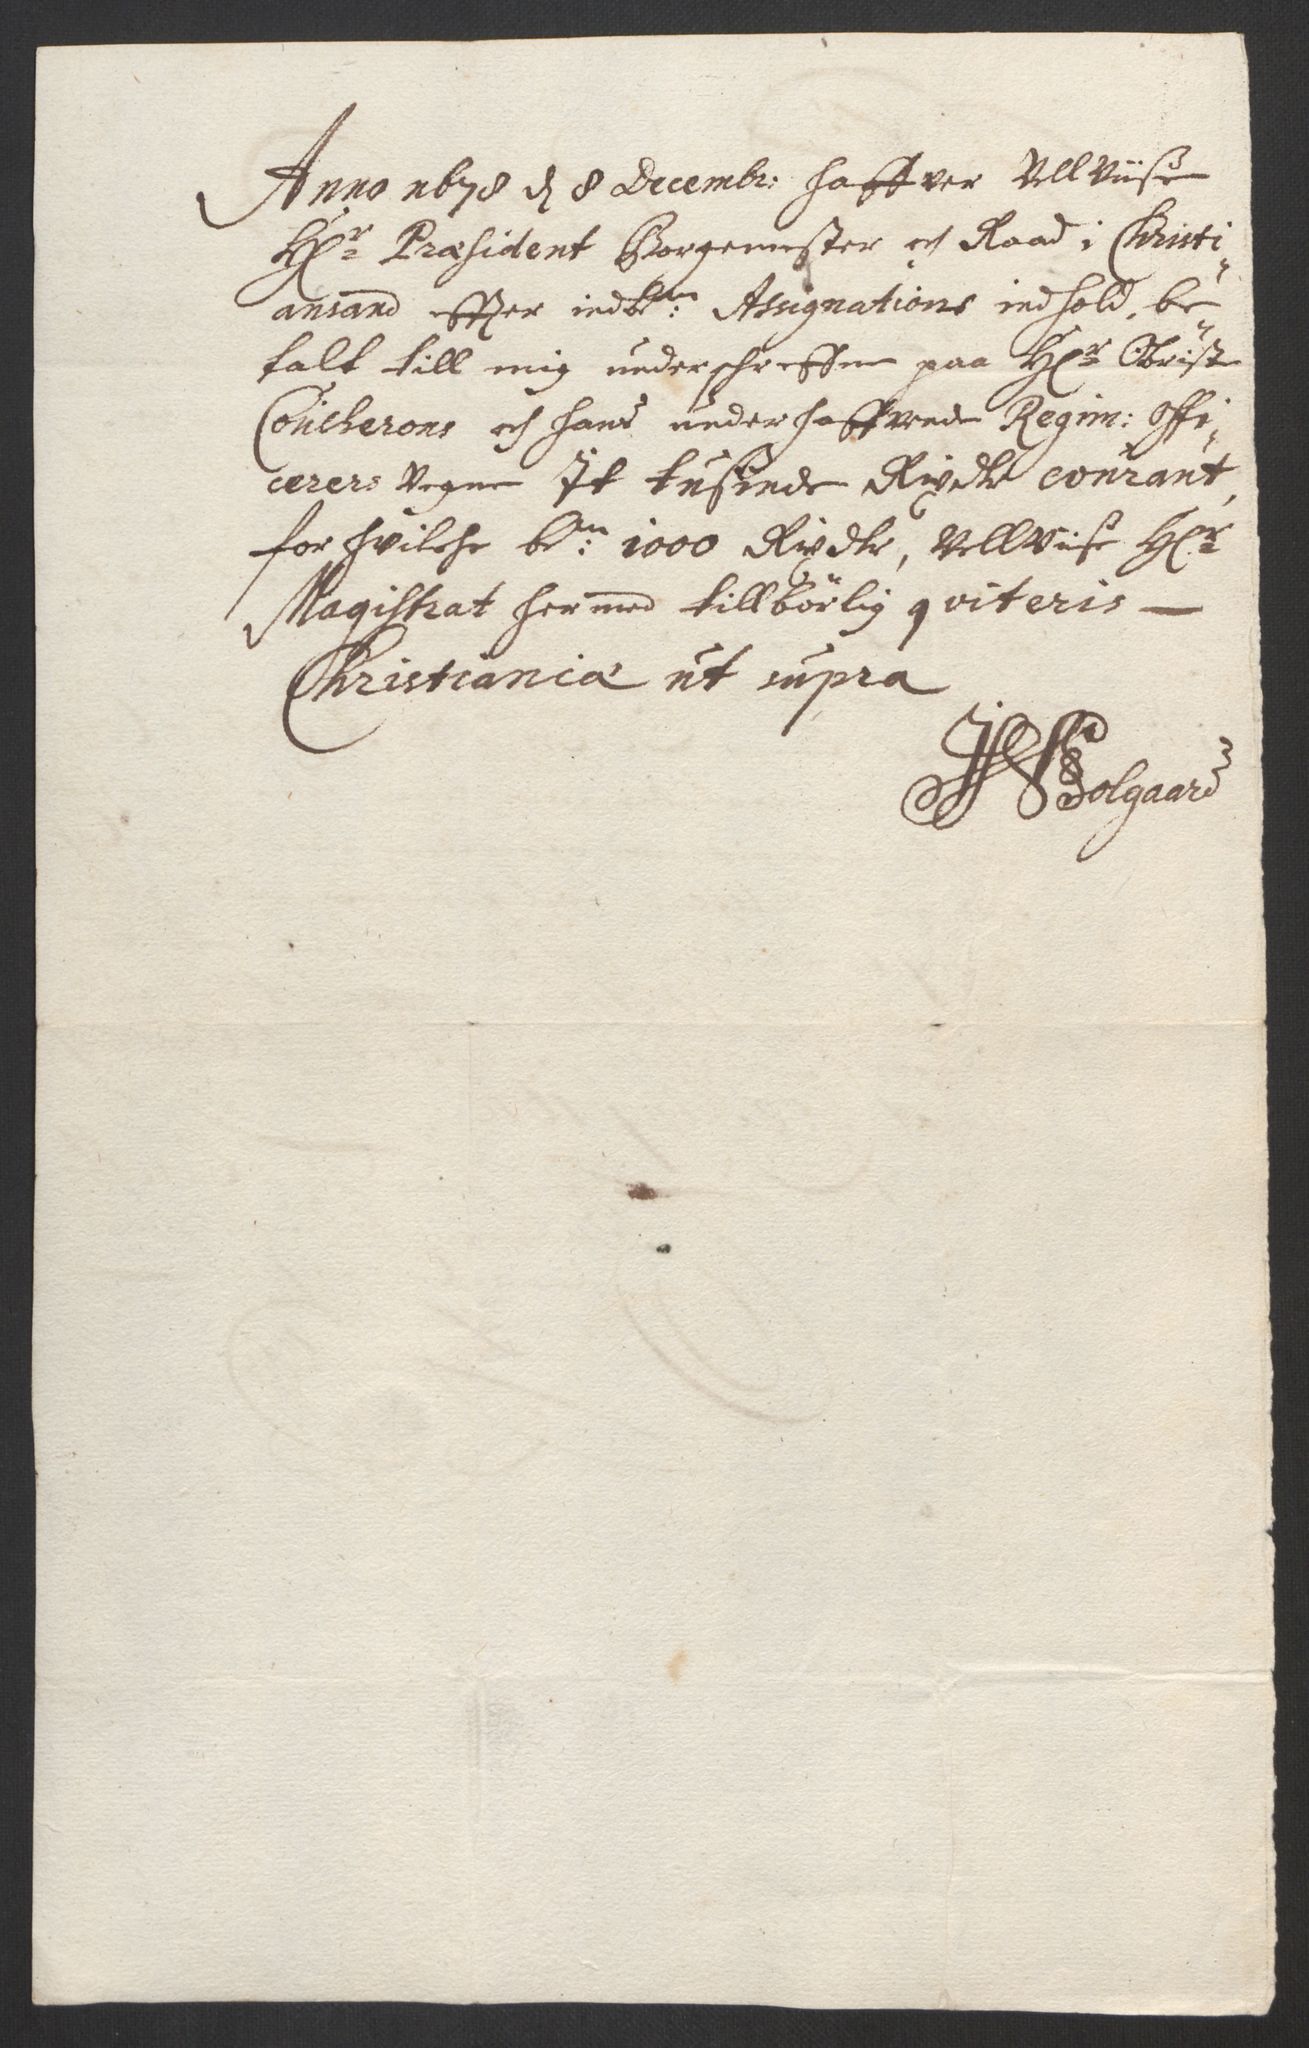 Anno 1678 d 8 Decembr: haffver Vell Viise
Hr Præsident Borgemester och Raad i Christi-
ansand effter indbm: Assignations indhold, be-
talt till mig underschreffne paa Hr Obrist
Coucherons och hans underhaffvende Regim: Offi-
cerers Vegne It tusinde Rixdlr courant,
for hvilche bem: 1000 Rixdlr, VellViise Hr
Magistrat hermed tillbörlig qviteris —
Christianiæ ut supra
Solgaard